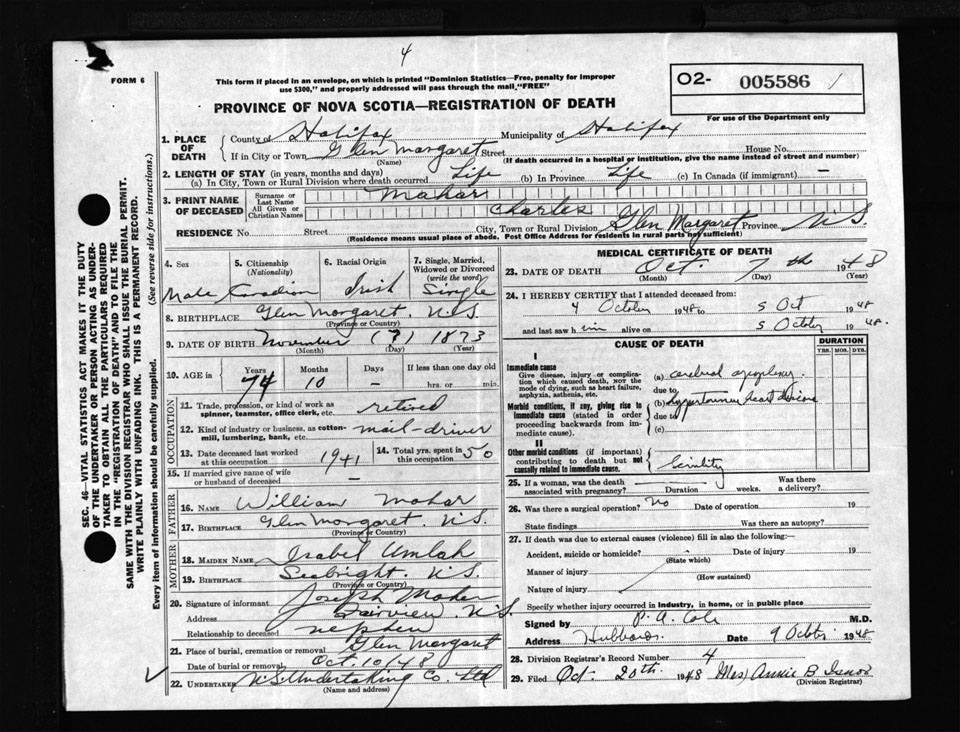 4
FORM 6
This form if placed in an envelope, on which is printed "Dominion Statistics—Free, penalty for improper
use $300," and properly addressed will pass through the mail "FREE"
O2- 005586 /
For use of the Department only
PROVINCE OF NOVA SCOTIA—REGISTRATION OF DEATH
SEC. 46—VITAL STATISTICS ACT MAKES IT THE DUTY
OF THE UNDERTAKER OR PERSON ACTING AS UNDER-
TAKER TO OBTAIN ALL THE PARTICULARS REQUIRED
IN THE "REGISTRATION OF DEATH" AND TO FILE THE
SAME WITH THE DIVISION REGISTRAR WHO SHALL ISSUE THE BURIAL PERMIT.
WRITE PLAINLY WITH UNFADING INK. THIS IS A PERMANENT RECORD.
Every item of information should be carefully supplied. (See reverse side for instructions.)
1. PLACE OF DEATH
County of Halifax Municipality of Halifax
If in City or Town Glen Margaret Street House No.
(Name) (If death occurred in a hospital or institution, give the name instead of street and number)
2. LENGTH OF STAY (in years, months and days)
(a) In City, Town or Rural Division where death occurred Life (b) In Province Life (c) In Canada (if immigrant) —
3. PRINT NAME OF DECEASED
Surname or Last Name Mahar
All Given or Christian Names Charles
RESIDENCE No. Street City, Town or Rural Division Glen Margaret Province N S
(Residence means usual place of abode. Post Office Address for residents in rural parts not sufficient)
4. Sex Male
5. Citizenship (Nationality) Canadian
6. Racial Origin Irish
7. Single, Married, Widowed or Divorced (write the word) Single
8. BIRTHPLACE Glen Margaret. N.S.
(Province or Country)
9. DATE OF BIRTH November (?) 1873
(Month) (Day) (Year)
10. AGE in Years 74 Months 10 Days – If less than one day old hrs. or min.
OCCUPATION
11. Trade, profession, or kind of work as spinner, teamster, office clerk, etc. retired
12. Kind of industry or business, as cotton-mill, lumbering, bank, etc. mail-driver
13. Date deceased last worked at this occupation 1941
14. Total yrs. spent in this occupation 50
15. If married give name of wife or husband of deceased —
FATHER
16. Name William Mahar
17. Birthplace Glen Margaret. N.S.
(Province or Country)
MOTHER
18. Maiden Name Isabel Umlah
19. Birthplace Seabright N.S.
(Province or Country)
20. Signature of informant Joseph Maher
Address Fairview, N.S.
Relationship to deceased nephew
21. Place of burial, cremation or removal Glen Margaret
Date of burial or removal Oct. 10/48
22. UNDERTAKER N.S. Undertaking Co. Ltd
(Name and address)
MEDICAL CERTIFICATE OF DEATH
23. DATE OF DEATH Oct. 7th 1948
(Month) (Day) (Year)
24. I HEREBY CERTIFY that I attended deceased from:
4 October 1948 to 5 Oct 1948
and last saw him alive on 5 October 1948.
CAUSE OF DEATH
DURATION
YRS. MOS. DYS.
I
Immediate cause
Give disease, injury or complication which caused death, NOT the mode of dying, such as heart failure, asphyxia, asthenia, etc.
(a) cerebral apoplexy
due to
Morbid conditions, if any, giving rise to immediate cause (stated in order proceeding backwards from immediate cause).
(b) hypertensive heart disease
due to
(c)
II
Other morbid conditions (if important) contributing to death but not causally related to immediate cause.
Senility
25. If a woman, was the death associated with pregnancy? Duration weeks. Was there a delivery?
26. Was there a surgical operation? No Date of operation 19
State findings Was there an autopsy?
27. If death was due to external causes (violence) fill in also the following:—
Accident, suicide or homicide? Date of injury 19
(State which)
Manner of injury
(How sustained)
Nature of injury
Specify whether injury occurred in industry, in home, or in public place
Signed by P. A. Cole M.D.
Address Hubbards. Date 9 Octbr 1948
28. Division Registrar's Record Number 4
29. Filed Oct. 20th. 1948 (Mrs) Annie B
(Division Registrar)